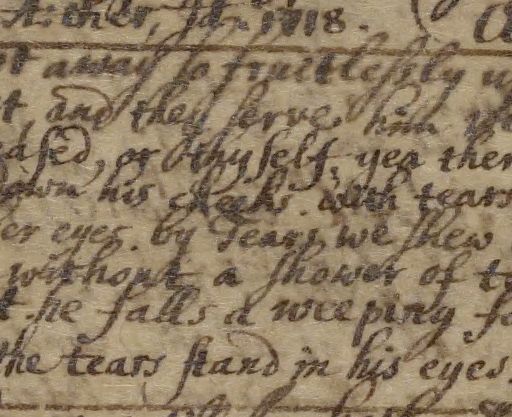 ther, Id. 1718.
away so fruitlessly
t, and they serve him
ased, or thyself, yea ther
down his cheeks with tears
er eyes. by Tears we shew
without a shower of t
t he falls a weeping, so
the tears stand in his eyes.